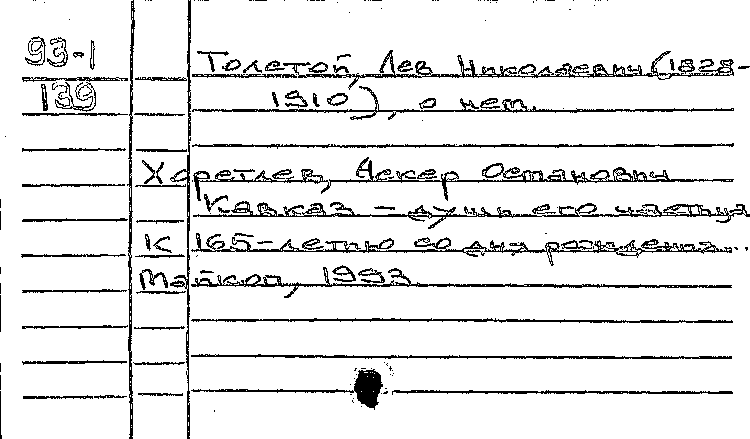 93-1
Толстой, Лев Николаевич (1828-
139
1910), о нем.
Хоретлев, Аскер Османович
Кавказ - души его частица
К 165-летию со дня рождения...
Майкоп, 1993